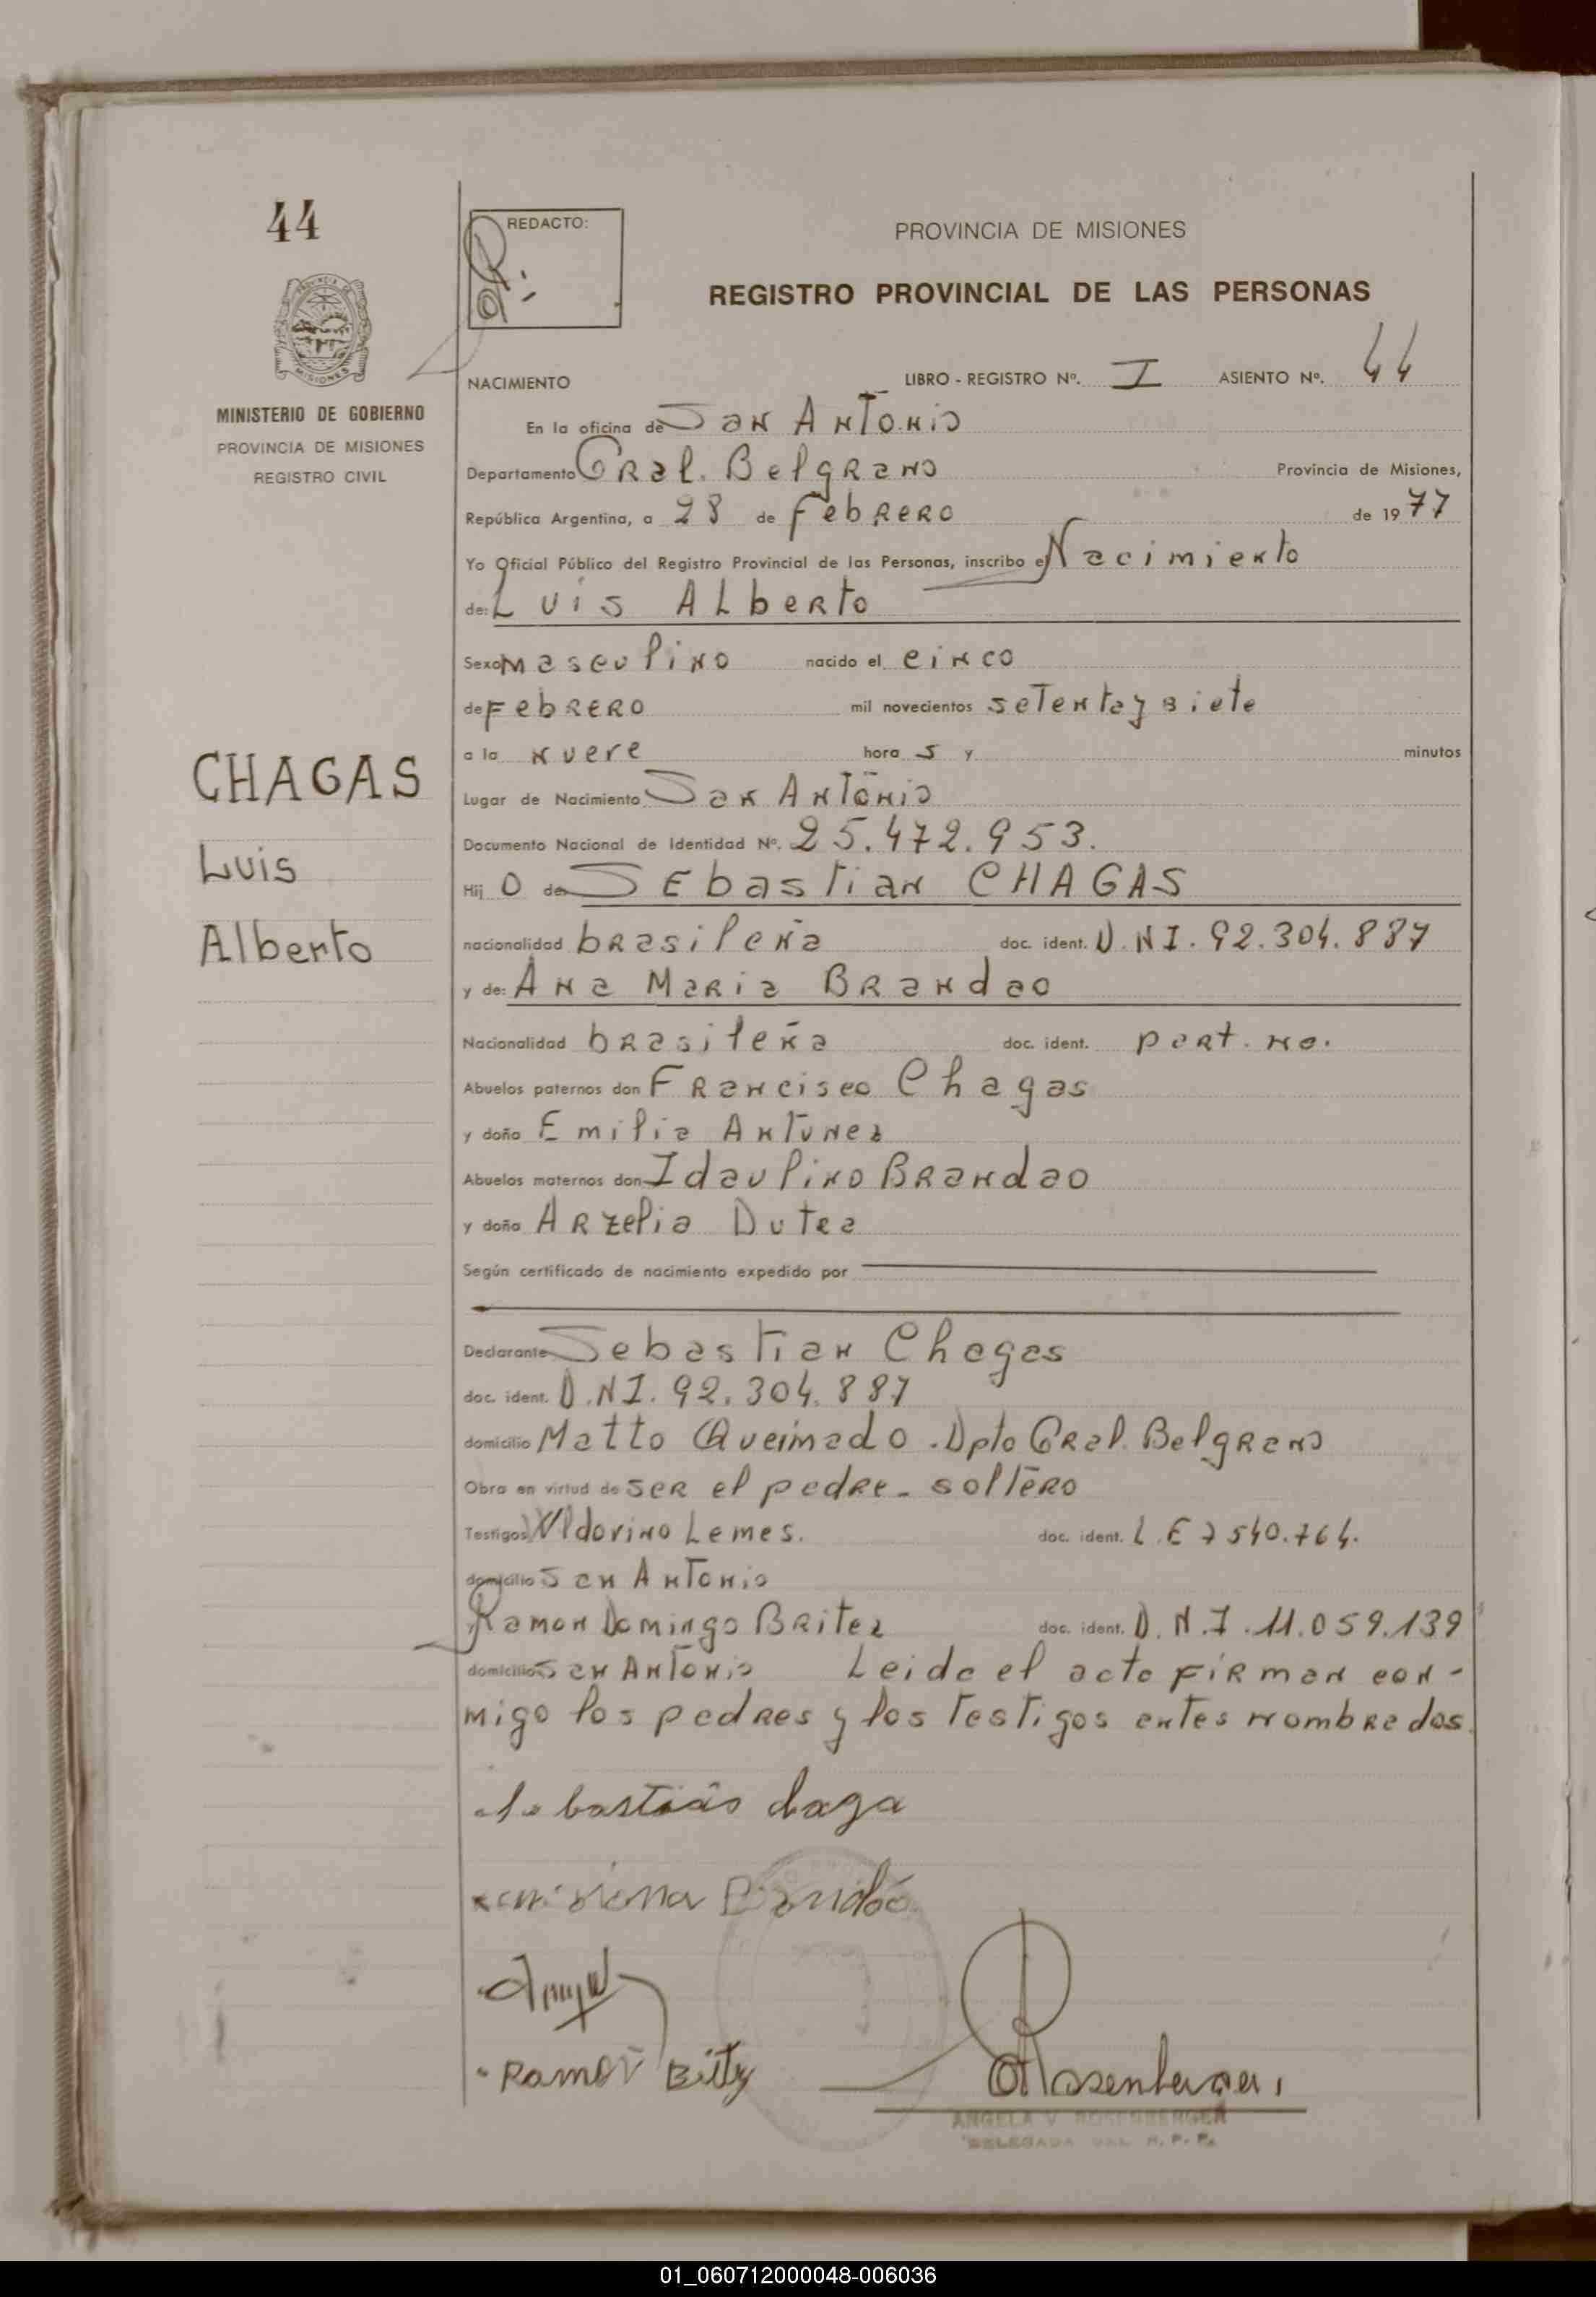 44
REDACTO:
PROVINCIA DE MISIONES
REGISTRO PROVINCIAL DE LAS PERSONAS
MISIONES
NACIMIENTO LIBRO - REGISTRO Nº. I ASIENTO Nº. 44
MINISTERIO DE GOBIERNO
PROVINCIA DE MISIONES
REGISTRO CIVIL
En la oficina de San Antonio
Departamento Gral. Belgrano Provincia de Misiones,
República Argentina, a 28 de Febrero de 1977
Yo Oficial Público del Registro Provincial de las Personas, inscribo el Nacimiento
de: Luis Alberto
Sexo masculino nacido el cinco
de Febrero mil novecientos setenta y siete
a la nueve hora s y minutos
CHAGAS
Luis
Alberto
Lugar de Nacimiento San Antonio
Documento Nacional de Identidad Nº. 25.472.953.
Hij o de Sebastian CHAGAS
nacionalidad brasileña doc. ident. D.N.I. 92.304.887
y de: Ana Maria Brandao
Nacionalidad brasileña doc. ident. port. no.
Abuelos paternos don Francisco Chagas
y doña Emilia Antunez
Abuelos maternos don Idaulino Brandao
y doña Arzelia Dutra
Según certificado de nacimiento expedido por
Declarante Sebastian Chagas
doc. ident. D.N.I. 92.304.887
domicilio Matto Queimado. Dpto Gral. Belgrano
Obra en virtud de ser el padre - soltero
Testigos Vldorino Lemes. doc. ident. L.E 7540.764.
domicilio San Antonio
Ramon Domingo Britez doc. ident. D.N.I. 11.059.139
domicilio San Antonio Leida el acto firman con-
migo los padres y los testigos antes nombrados.
Sebastião chaga
Brandão
Ramon Britz
Rosenberger
ANGELA V. ROSENBERGER
DELEGADA DEL R. P. P.
01_060712000048-006036